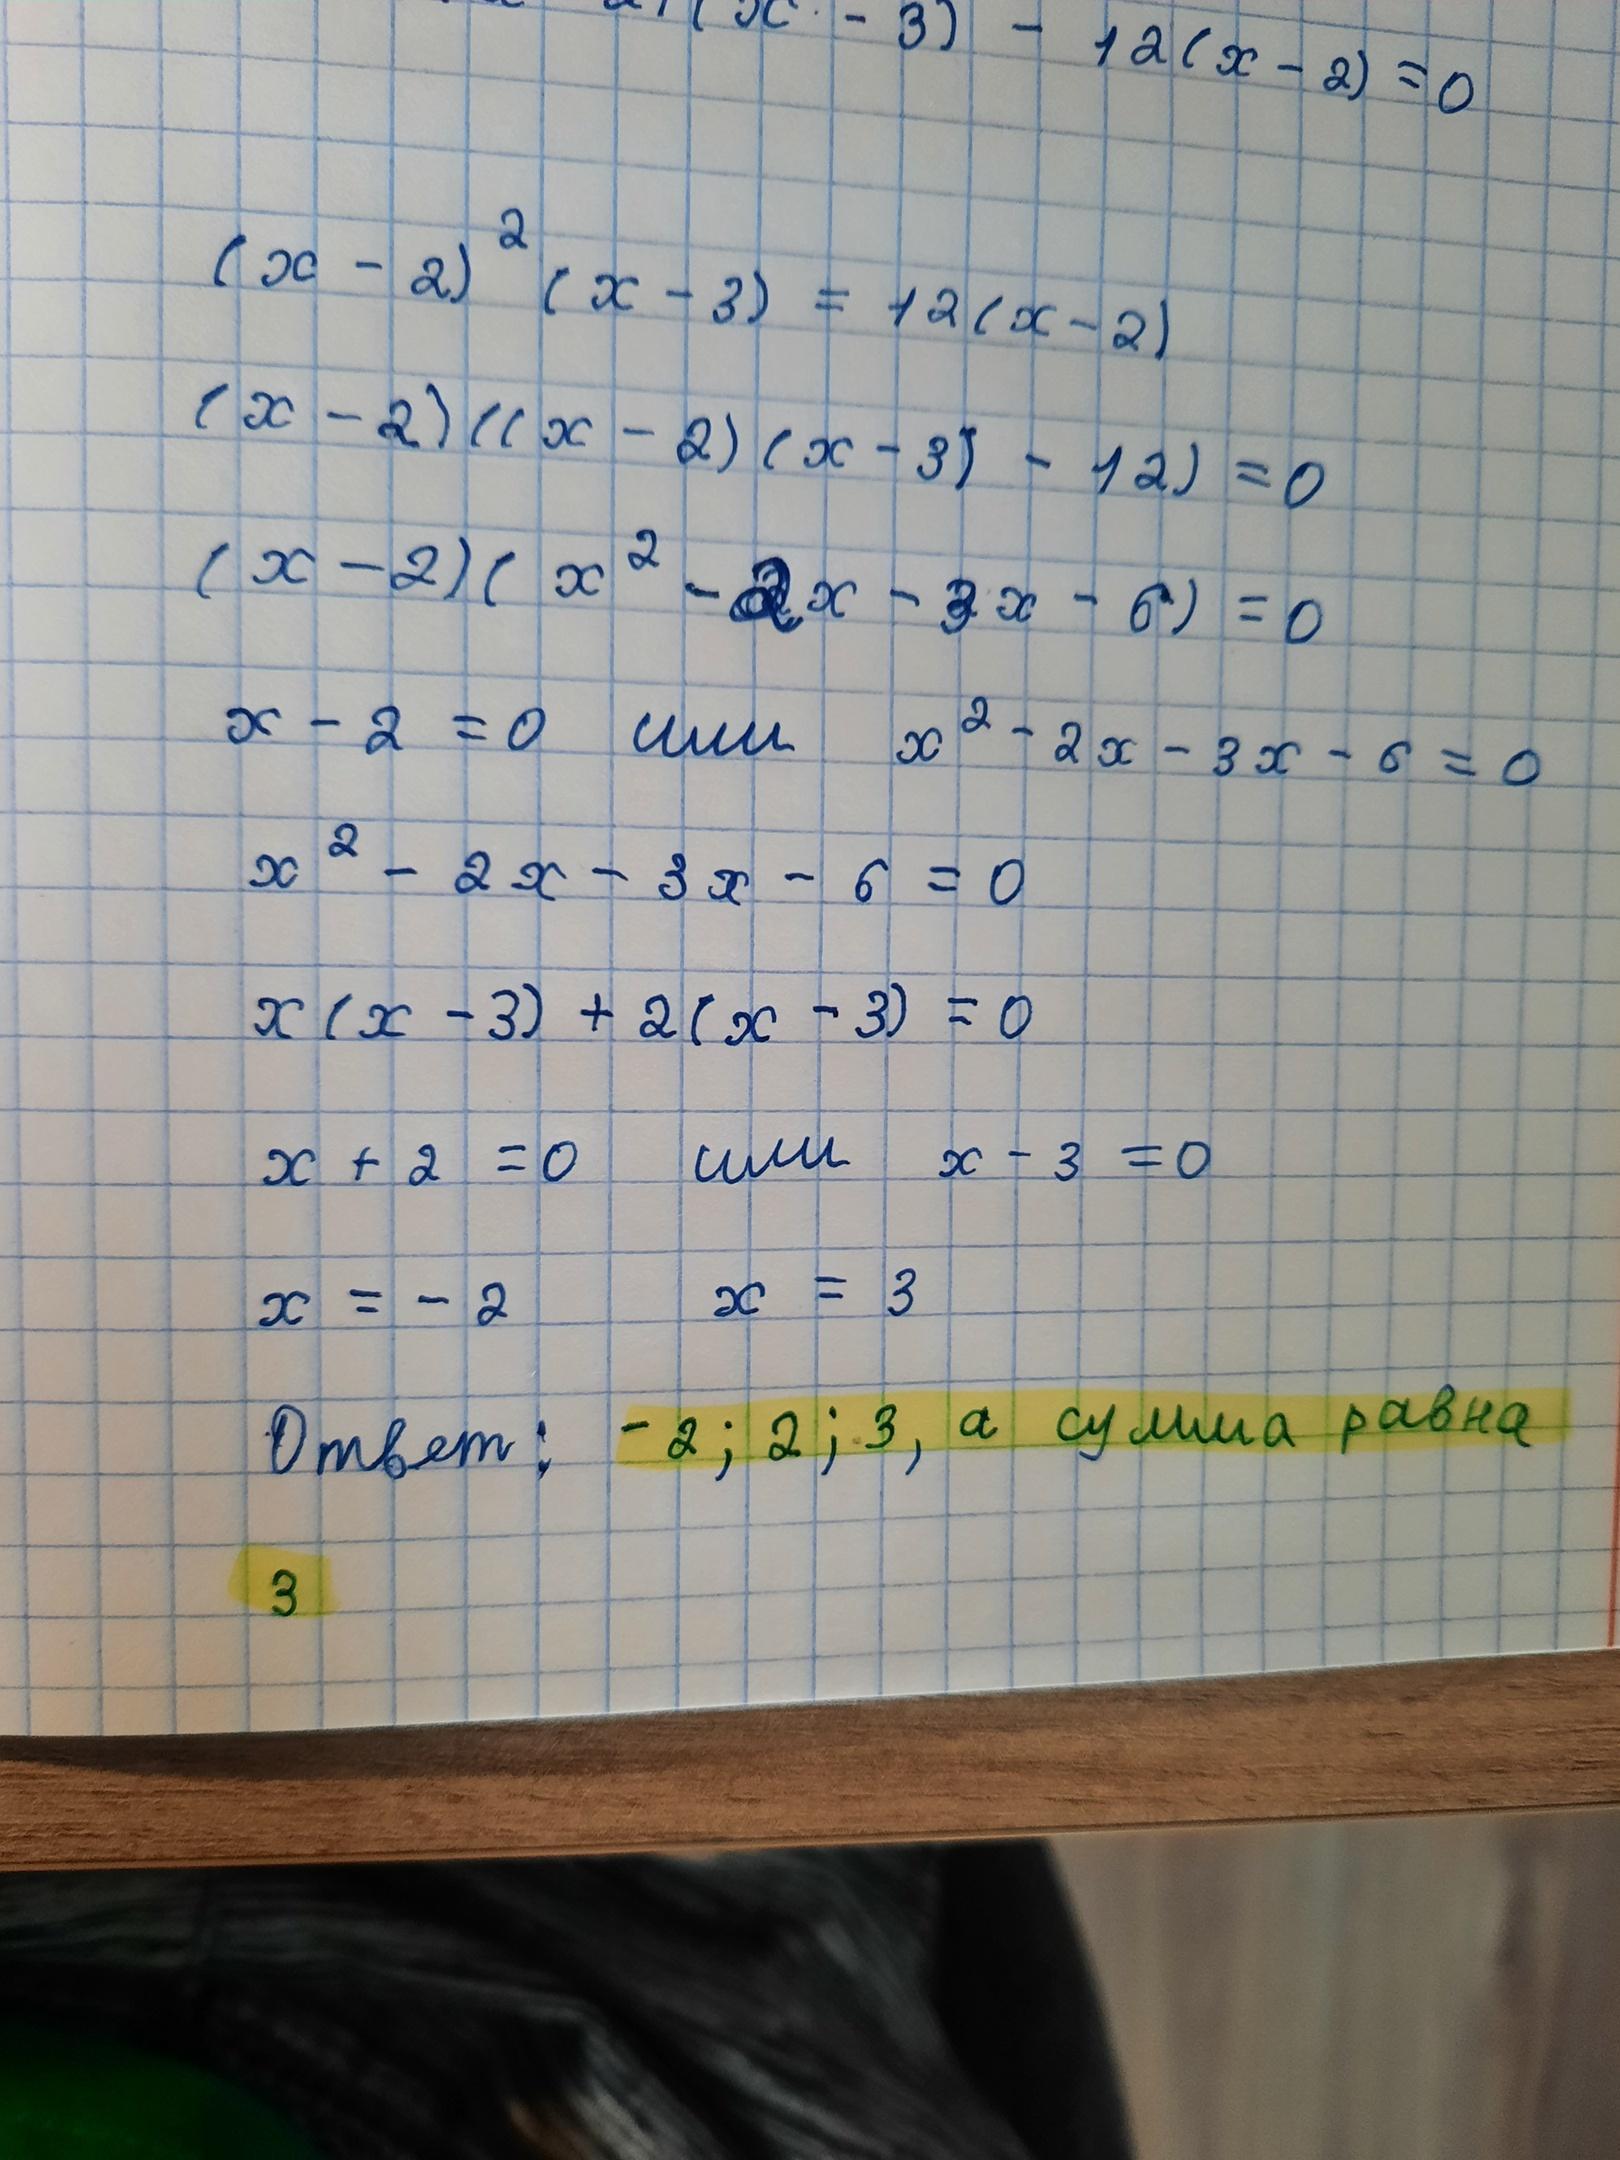 (x - 3) - 12(x - 2) = 0
(x - 2)² (x - 3) = 12(x - 2)
(x - 2)((x - 2)(x - 3) - 12) = 0
(x - 2)(x² - 2x - 3x - 6) = 0
x - 2 = 0 или x² - 2x - 3x - 6 = 0
x² - 2x - 3x - 6 = 0
x(x - 3) + 2(x - 3) = 0
x + 2 = 0 или x - 3 = 0
x = - 2 x = 3
Ответ: -2; 2; 3, а сумма равна
3